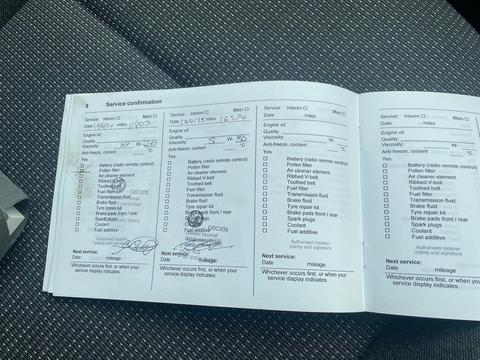 8 Service confirmation
Service: Interim Main
Date miles 11803
Engine oil
Quality
Viscosity: W-
Anti-freeze, coolant °C
Yes
Battery (radio remote control)
Pollen filter
Air cleaner element
Ribbed V-belt
Toothed belt
Fuel filter
Transmission
Brake fluid
Tyre repair kit
Brake pads front / rear
Spark plugs
Coolant
Fuel additive
Next service:
Date mileage
Whichever occurs first, or when your
service display indicates.
Service: Interim Main
Date miles 16574
Engine oil
Quality
Viscosity: 5 W- 30
Anti-freeze, coolant °C
Yes
Battery (radio remote control)
Pollen filter
Air cleaner element
Ribbed V-belt
Toothed belt
Fuel filter
Transmission
Brake fluid
Tyre repair kit
Brake pads front / rear
Spark plugs
Coolant
Fuel additive
Next service:
Date mileage
Whichever occurs first, or when your
service display indicates.
Service: Interim Main
Date miles
Engine oil
Quality
Viscosity: W-
Anti-freeze, coolant °C
Yes
Battery (radio remote control)
Pollen filter
Air cleaner element
Ribbed V-belt
Toothed belt
Fuel filter
Transmission
Brake fluid
Tyre repair kit
Brake pads front / rear
Spark plugs
Coolant
Fuel additive
Authorised repairer
stamp and signature
Next service:
Date mileage
Whichever occurs first, or when your
service display indicates.
Service: Interim
Date miles
Engine oil
Quality
Viscosity:
Anti-freeze, coolant
Yes
Battery (radio remote control)
Pollen filter
Air cleaner element
Ribbed V-belt
Toothed belt
Fuel filter
Transmission
Brake fluid
Tyre repair kit
Brake pads front / rear
Spark plugs
Coolant
Fuel additive
Authorised repairer
stamp and signature
Next service:
Date mileage
Whichever occurs first, or when your
service display indicates.